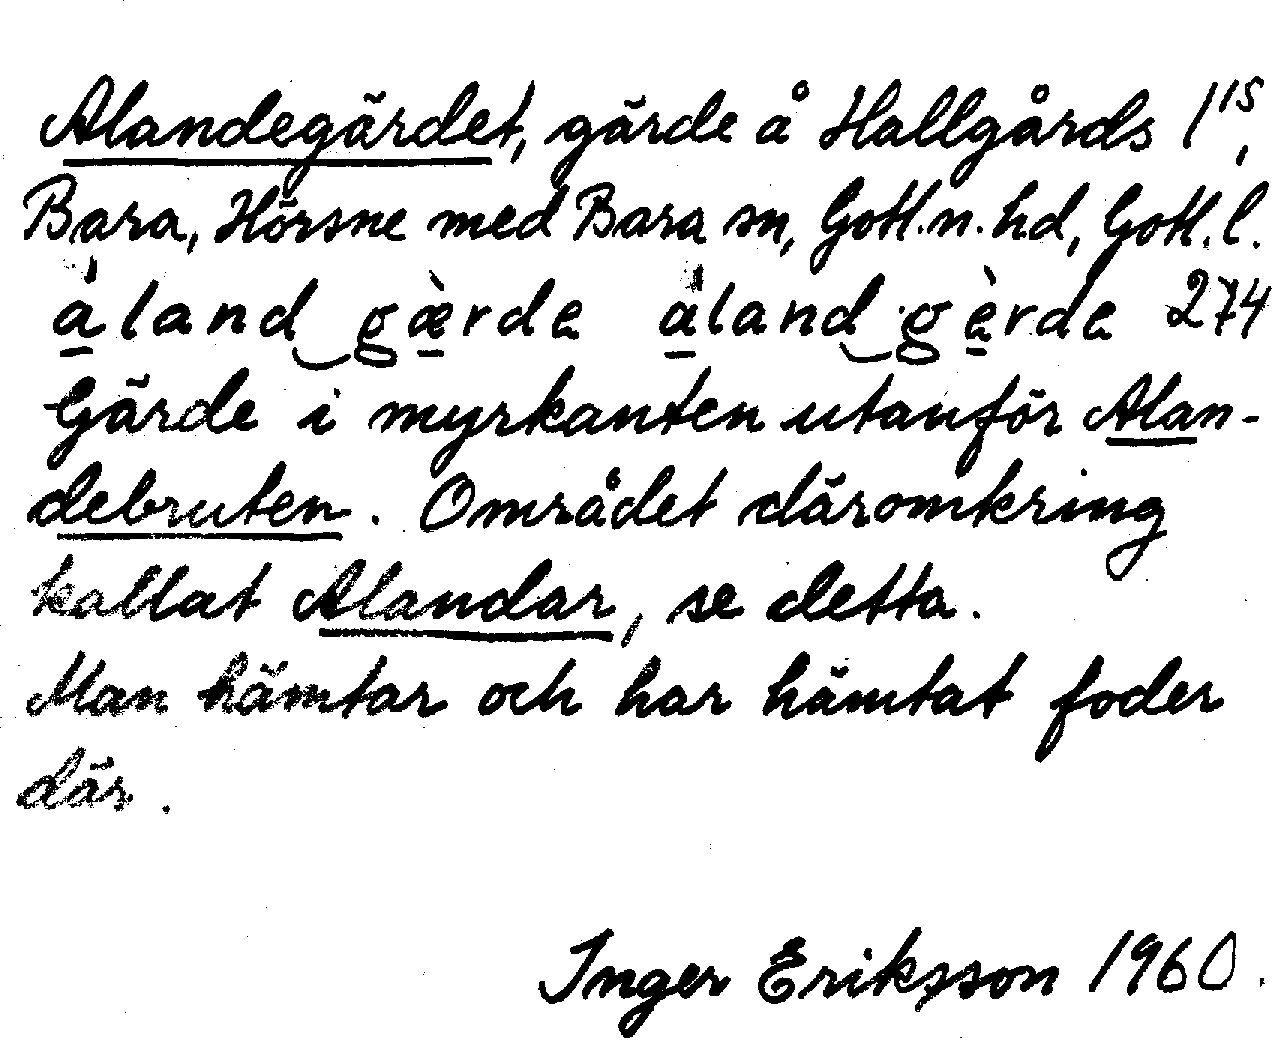 Alandegärdet, gärde å Hallgårds 1¹⁵,
Bara, Hörsne med Bara sn, Gotl.n.hd, Gotl.l.
áland gæ̀rde áland gèrde 274
Gärde i myrkanten utanför Alan-
debruten. Området däromkring
kallat Alandar, se detta.
Man hämtar och har hämtat foder
där.
Inger Eriksson 1960.